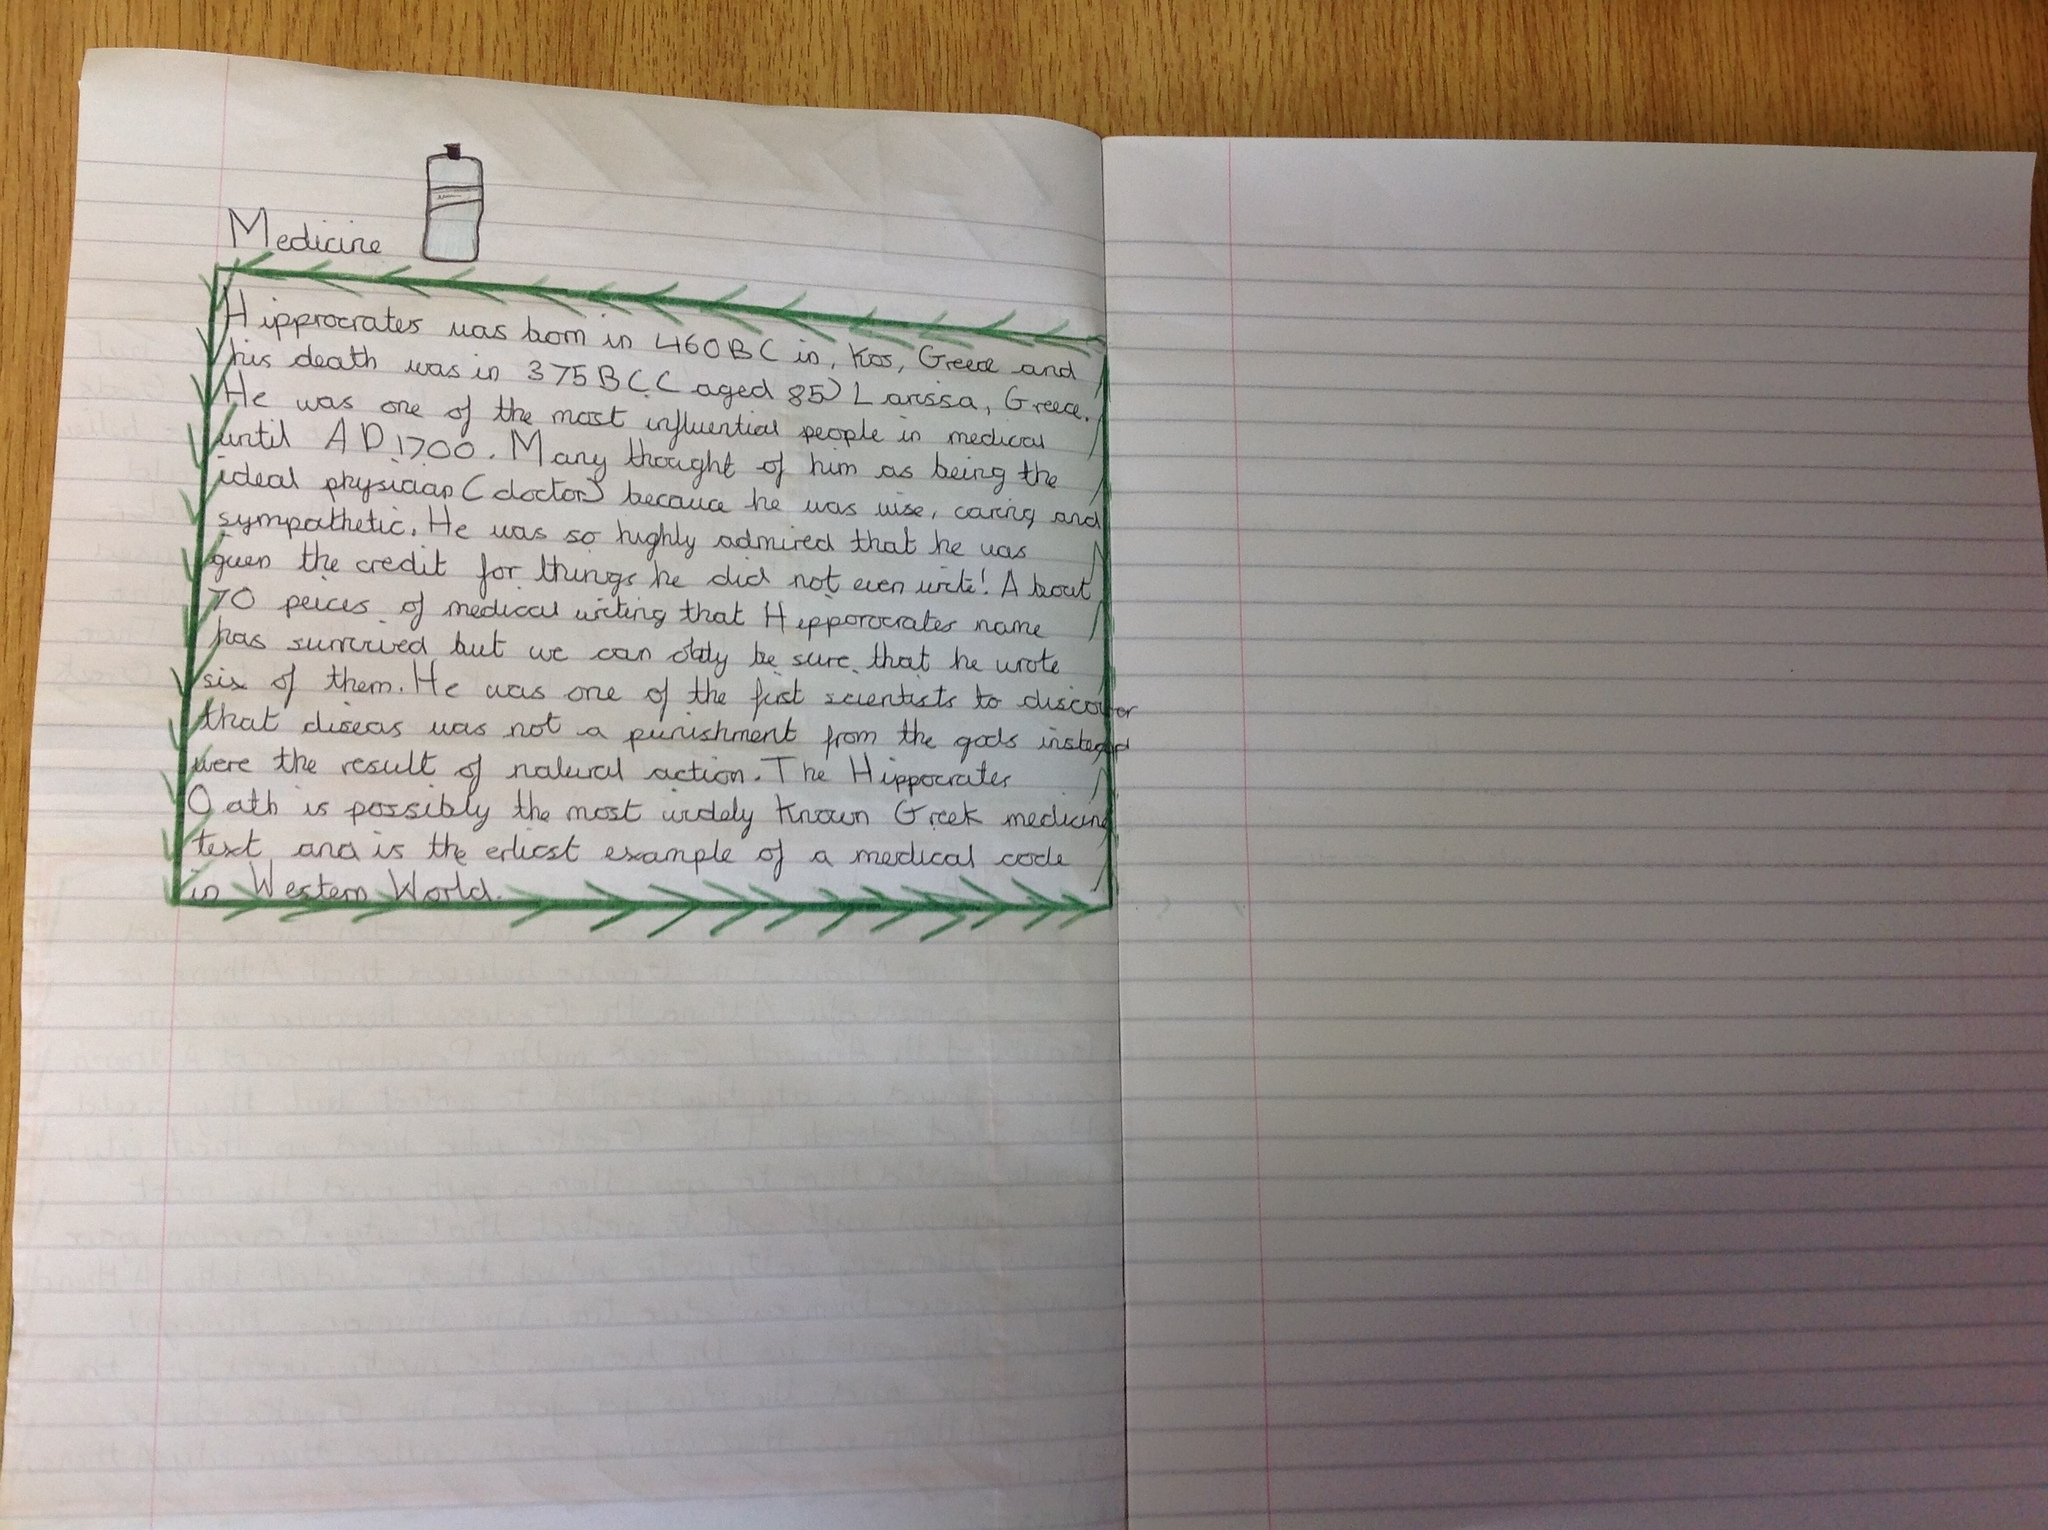 Medicine
Hipprocrates was born in 460BC in, Kos, Greece and
his death was in 375BC (aged 85) Larissa, Greece.
He was one of the most influential people in medical
until AD 1700. Many thought of him as being the
ideal physician (doctor) because he was wise, caring and
sympathetic. He was so highly admired that he was
given the credit for things he did not even write! About
70 peices of medical writing that Hipporocrates name
has survived but we can only be sure that he wrote
six of them. He was one of the first scientists to discover
that diseas was not a punishment from the gods instead
were the result of natural action. The Hippocrates
Oath is possibly the most widely known Greek medicine
text and is the erliest example of a medical code
in Western World.